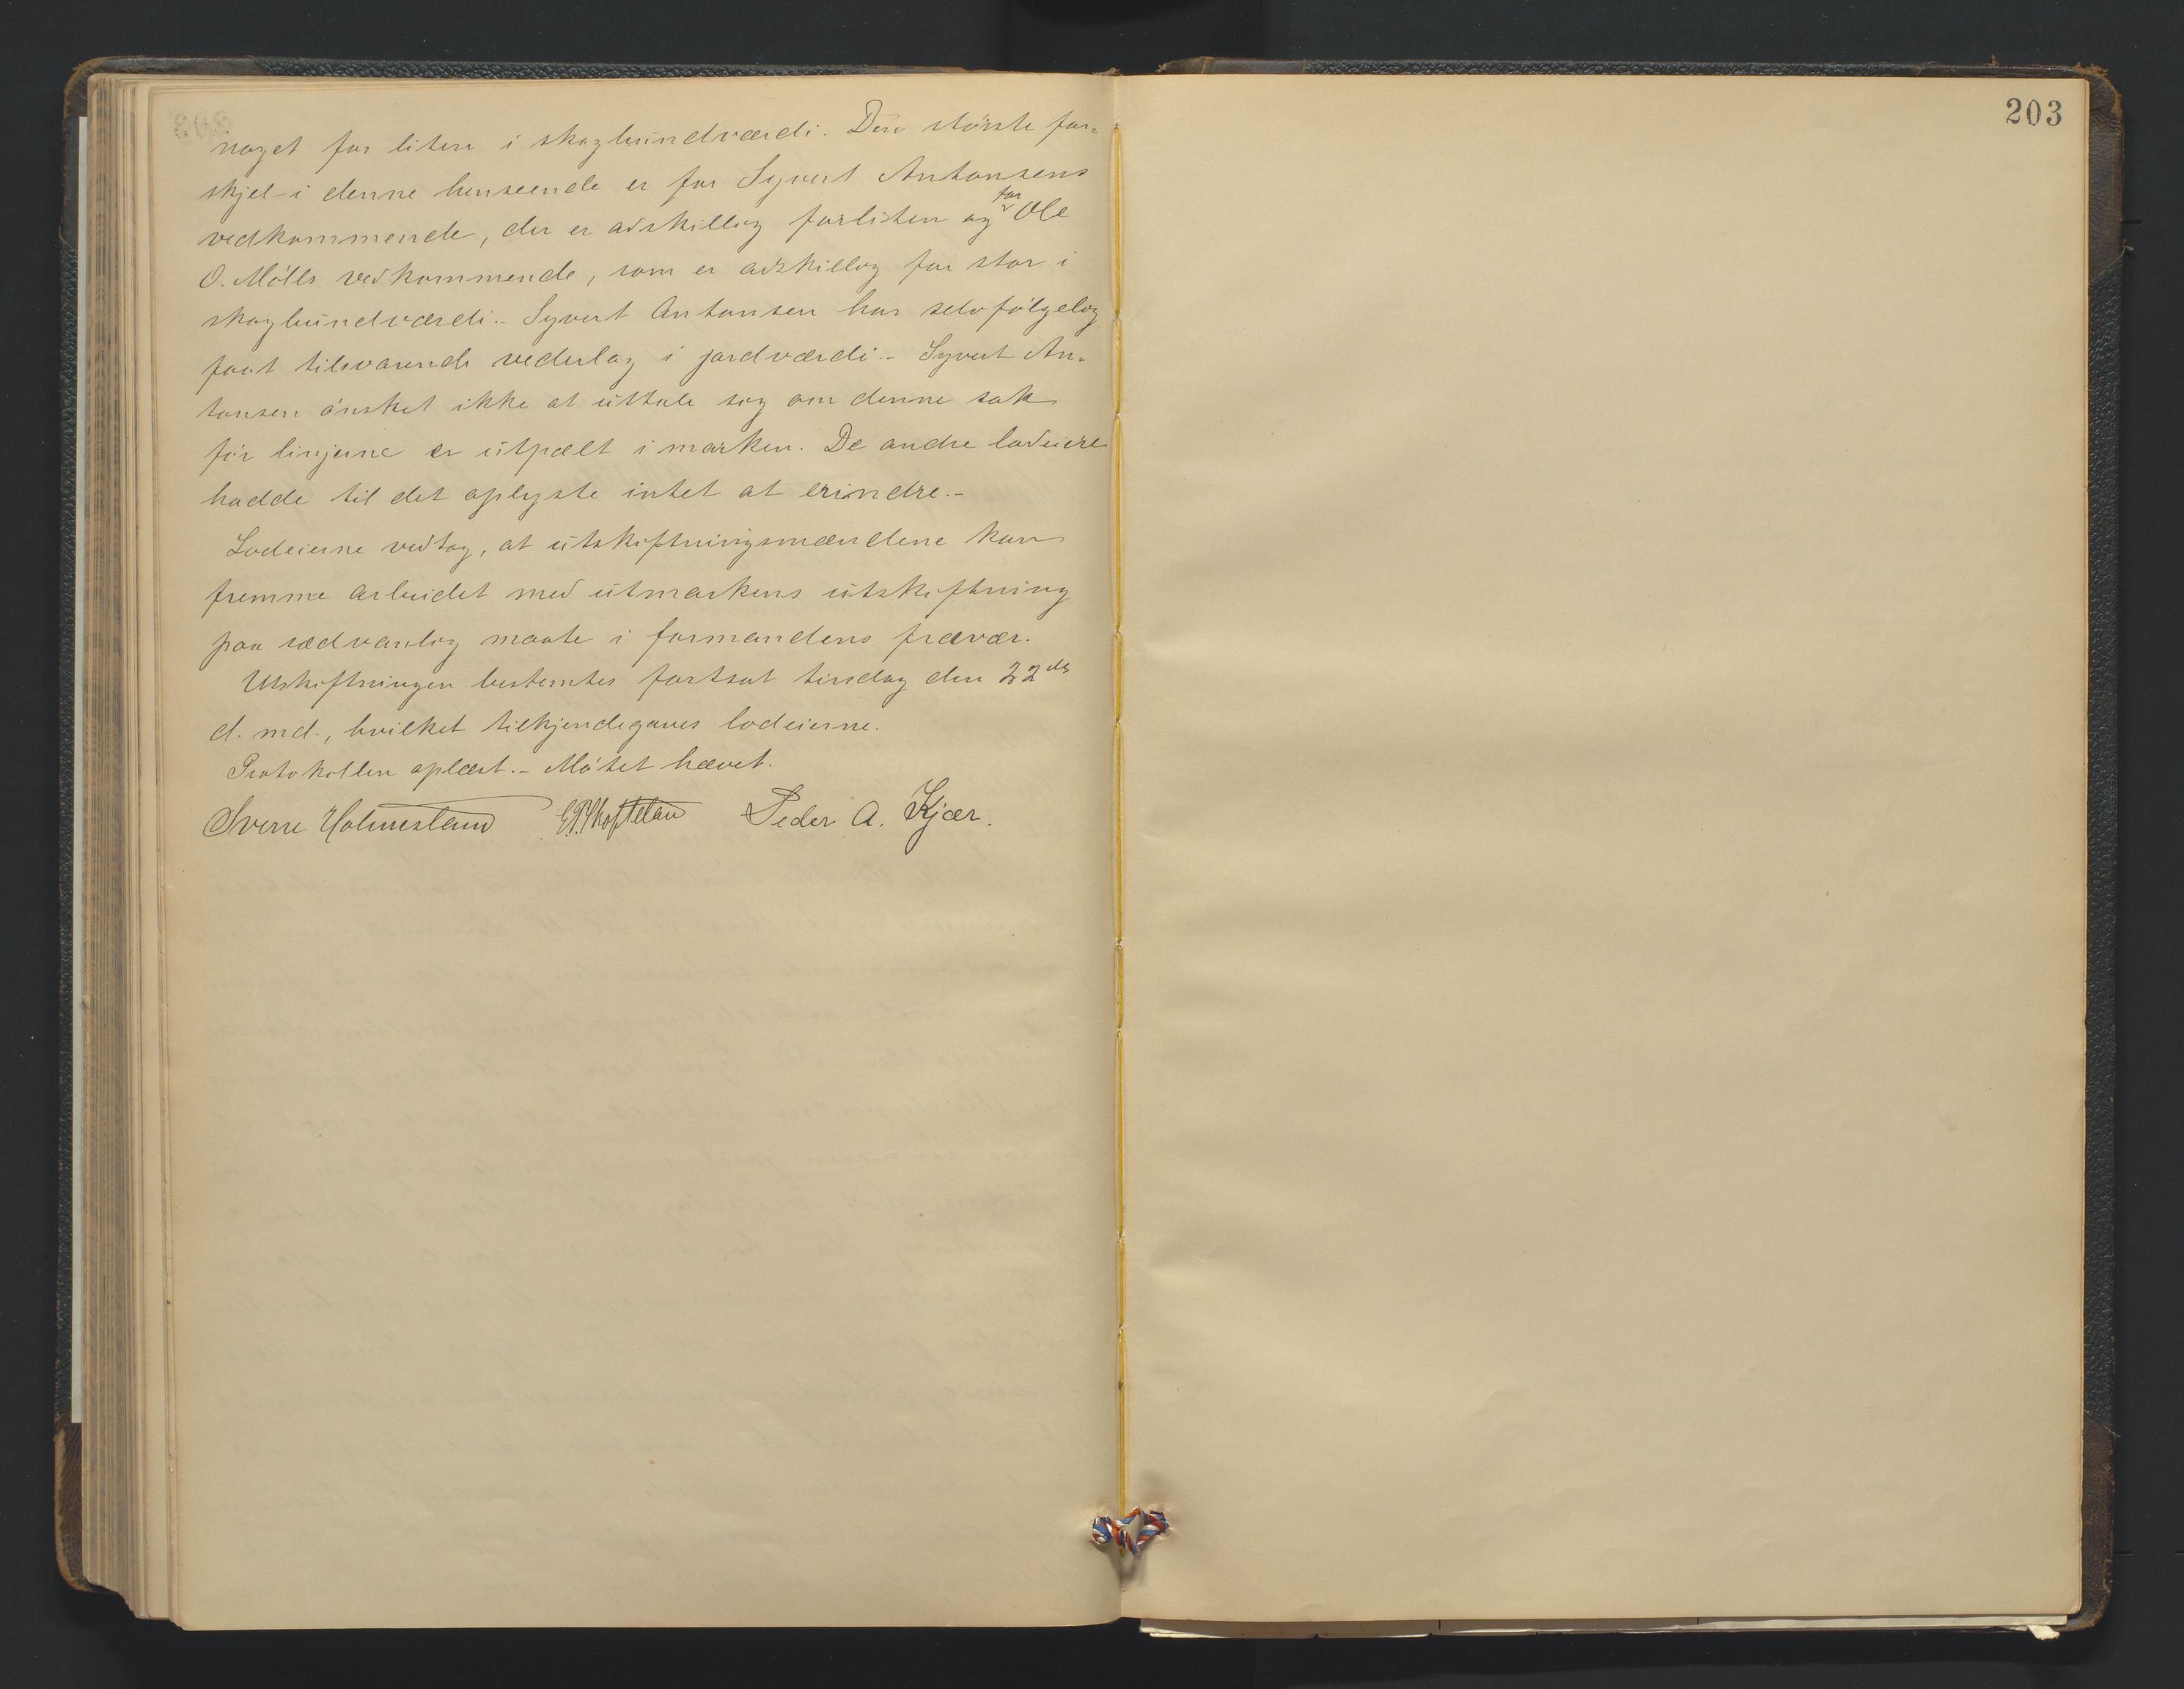 noget for liten i skogbundværdi. Den største for-
skjel i denne henseende er for Syvert Antonsens
vedkommende, der er adskillig forliten og for Ole
O. Mølls vedkommende, som er adskillig for stor i
skogbundværdi.- Syvert Antonsen har selvfølgelig
faat tilsvarende vederlag i jordværdi.- Syvert An-
tonsen ønsket ikke at uttale sig om denne sak
før linjerne er utpælt i marken. De andre lodeiere
hadde til det oplyste intet at erindre.-
Lodeierne vedtog, at utskiftningsmændene kan
fremme arbeidet med utmarkens utskiftning
paa sædvanlig maate i formandens fravær.
Utskiftningen bestemtes fortsat tirsdag den 22de
d. md., hvilket tilkjendegaves lodeierne.
Protokollen oplæst.- Møtet hævet.
Sverre Holmesland E.P. Skoftelan Peder A. Kjær.
203